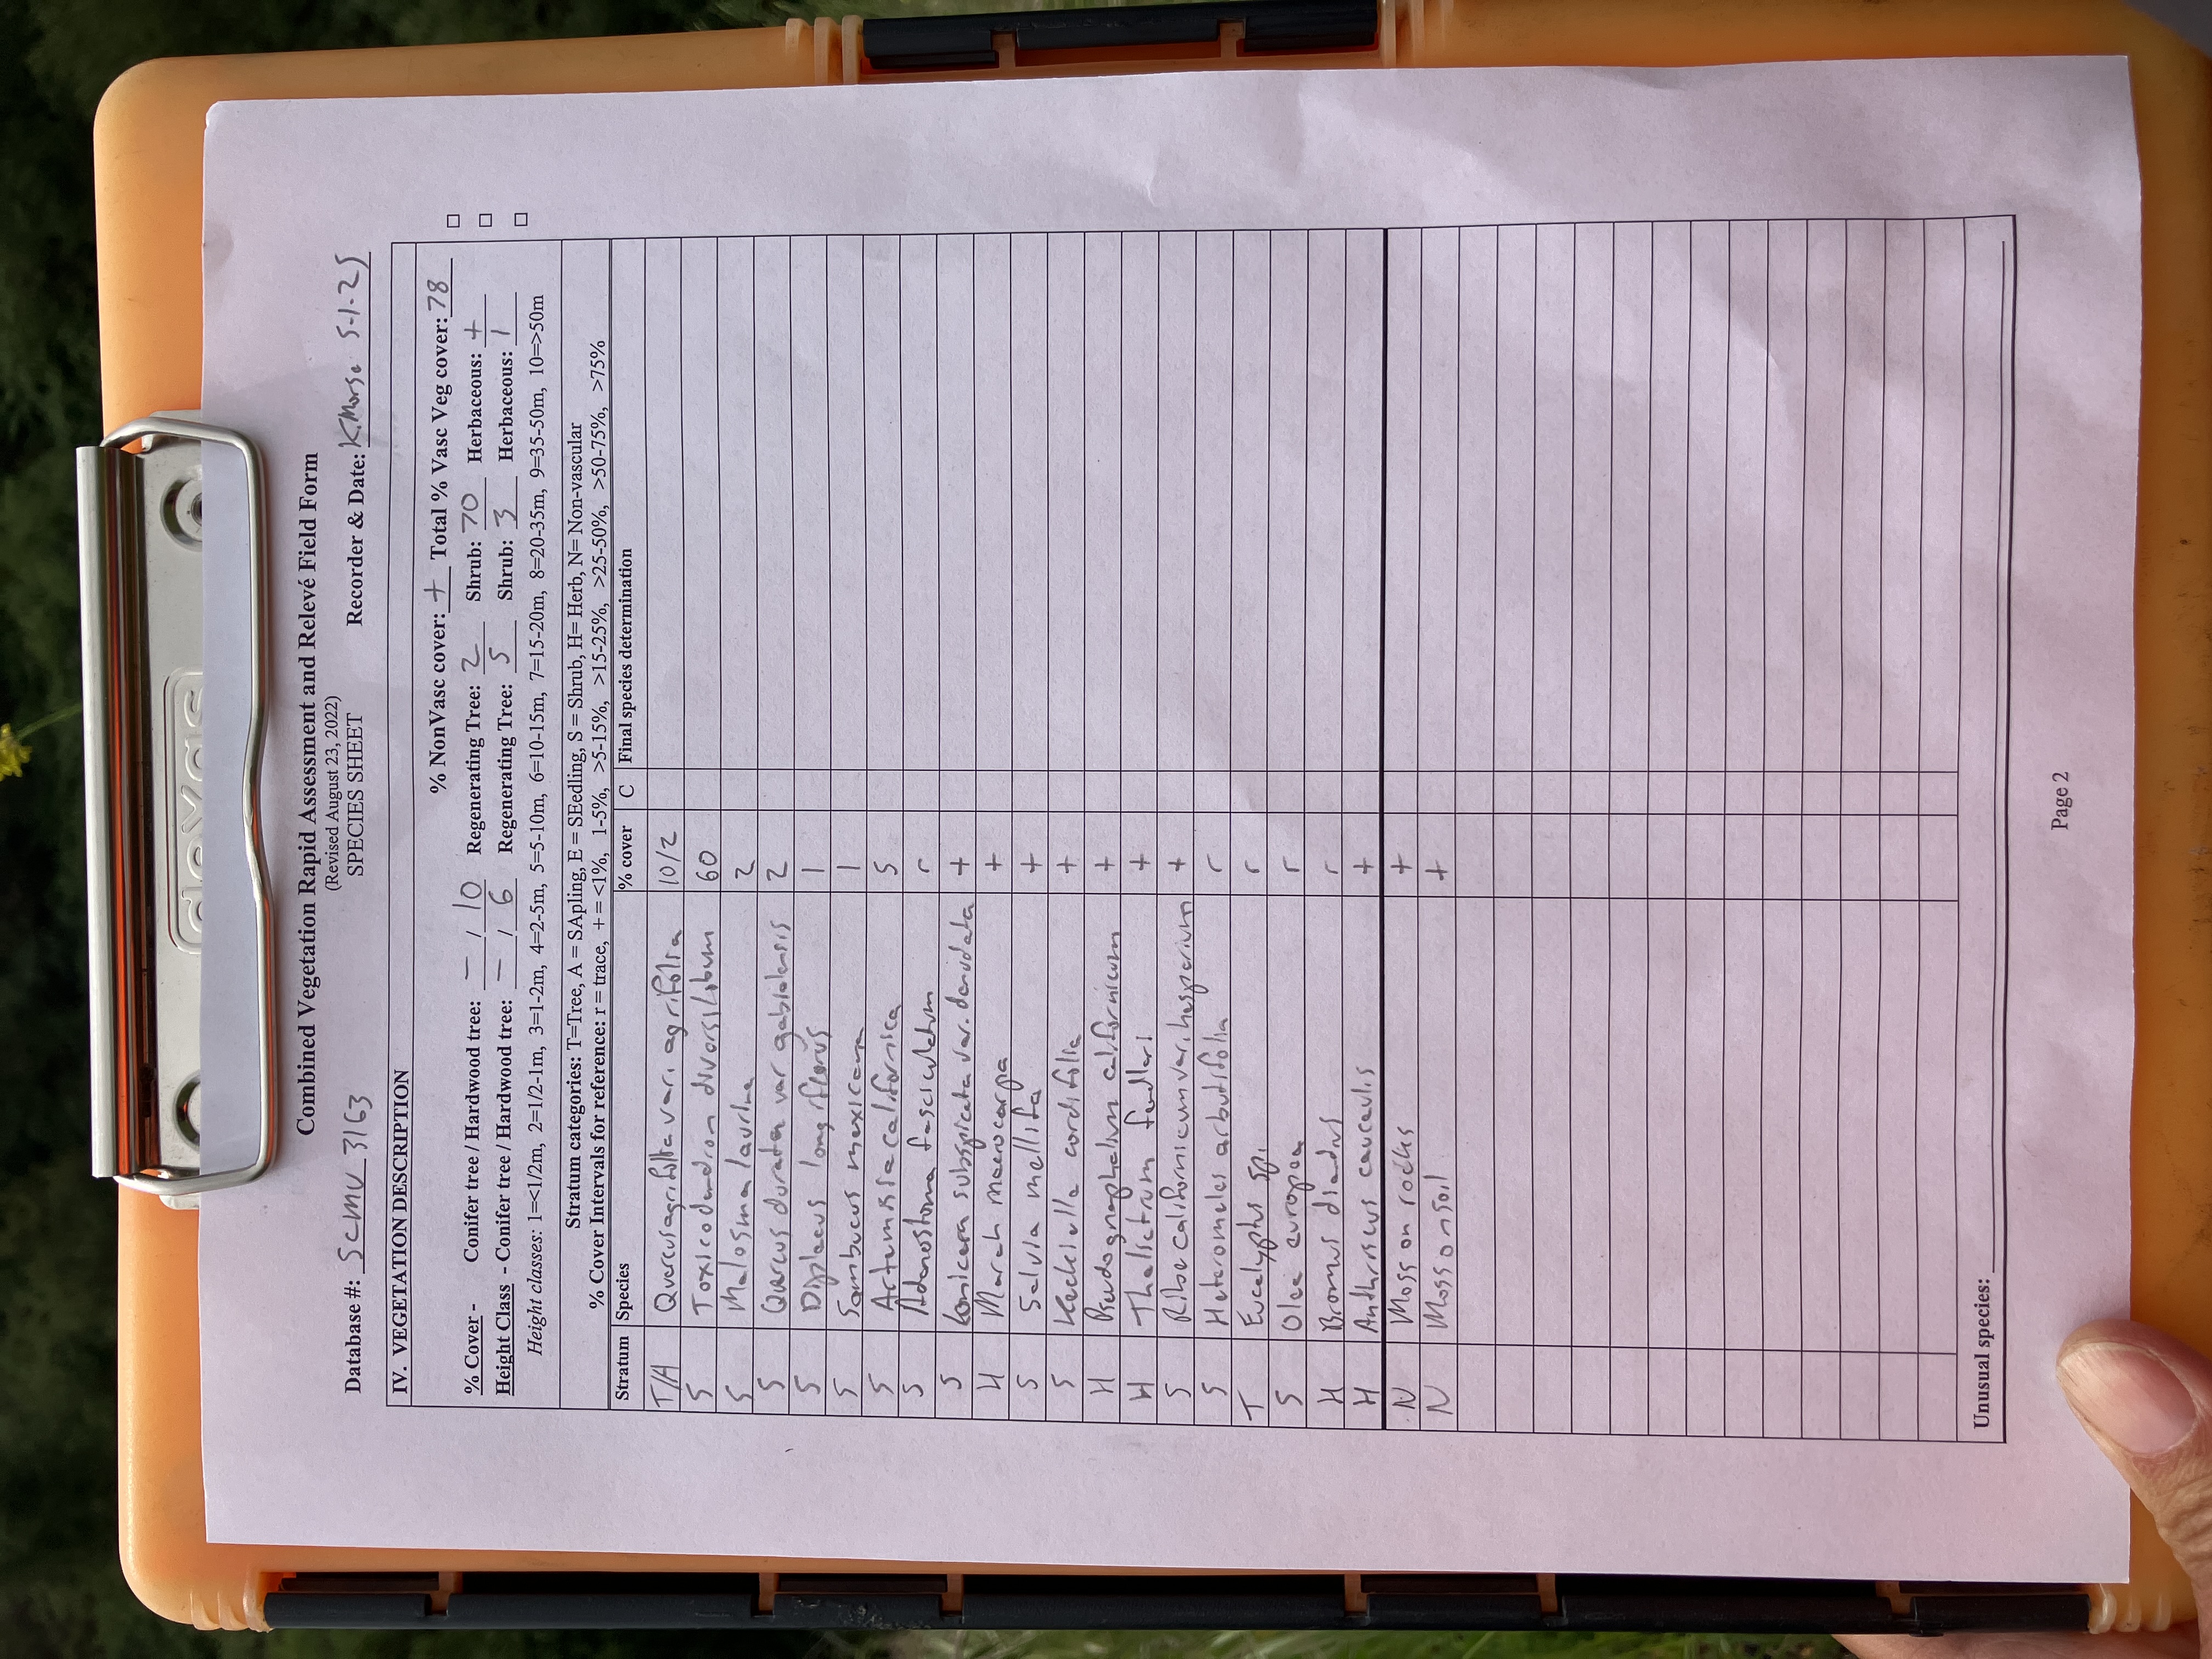 devas
Combined Vegetation Rapid Assessment and Relevé Field Form
(Revised August 23, 2022)
SPECIES SHEET
Database #: SCMU 3163 Recorder & Date: K.Morse 5-1-25
IV. VEGETATION DESCRIPTION
% NonVasc cover: + Total % Vasc Veg cover: 78
% Cover - Conifer tree / Hardwood tree: – / 10 Regenerating Tree: 2 Shrub: 70 Herbaceous: +
Height Class - Conifer tree / Hardwood tree: – / 6 Regenerating Tree: 5 Shrub: 3 Herbaceous: 1
Height classes: 1=<1/2m, 2=1/2-1m, 3=1-2m, 4=2-5m, 5=5-10m, 6=10-15m, 7=15-20m, 8=20-35m, 9=35-50m, 10=>50m
Stratum categories: T=Tree, A = SApling, E = SEedling, S = Shrub, H= Herb, N= Non-vascular
% Cover Intervals for reference: r = trace, + = <1%, 1-5%, >5-15%, >15-25%, >25-50%, >50-75%, >75%
Stratum Species % cover C Final species determination
T/A Quercus agrifolia var. agrifolia 10/2
S Toxicodendron diversilobum 60
S Malosma laurina 2
S Quercus durata var gabrielensis 2
S Diplacus longiflorus 1
S Sambucus mexicana 1
S Artemisia californica 5
S Adenostoma fasciculatum r
S Lonicera subspicata var. denudata +
H Marah macrocarpa +
S Salvia mellifera +
S Keckiella cordifolia +
H Pseudognaphalium californicum +
H Thalictrum fendleri +
S Ribes californicum var. hesperium +
S Heteromeles arbutifolia r
T Eucalyptus sp. r
S Olea europaea r
H Bromus diandrus r
H Anthriscus caucalis +
N Moss on rocks +
N Moss on soil +
Unusual species:
Page 2